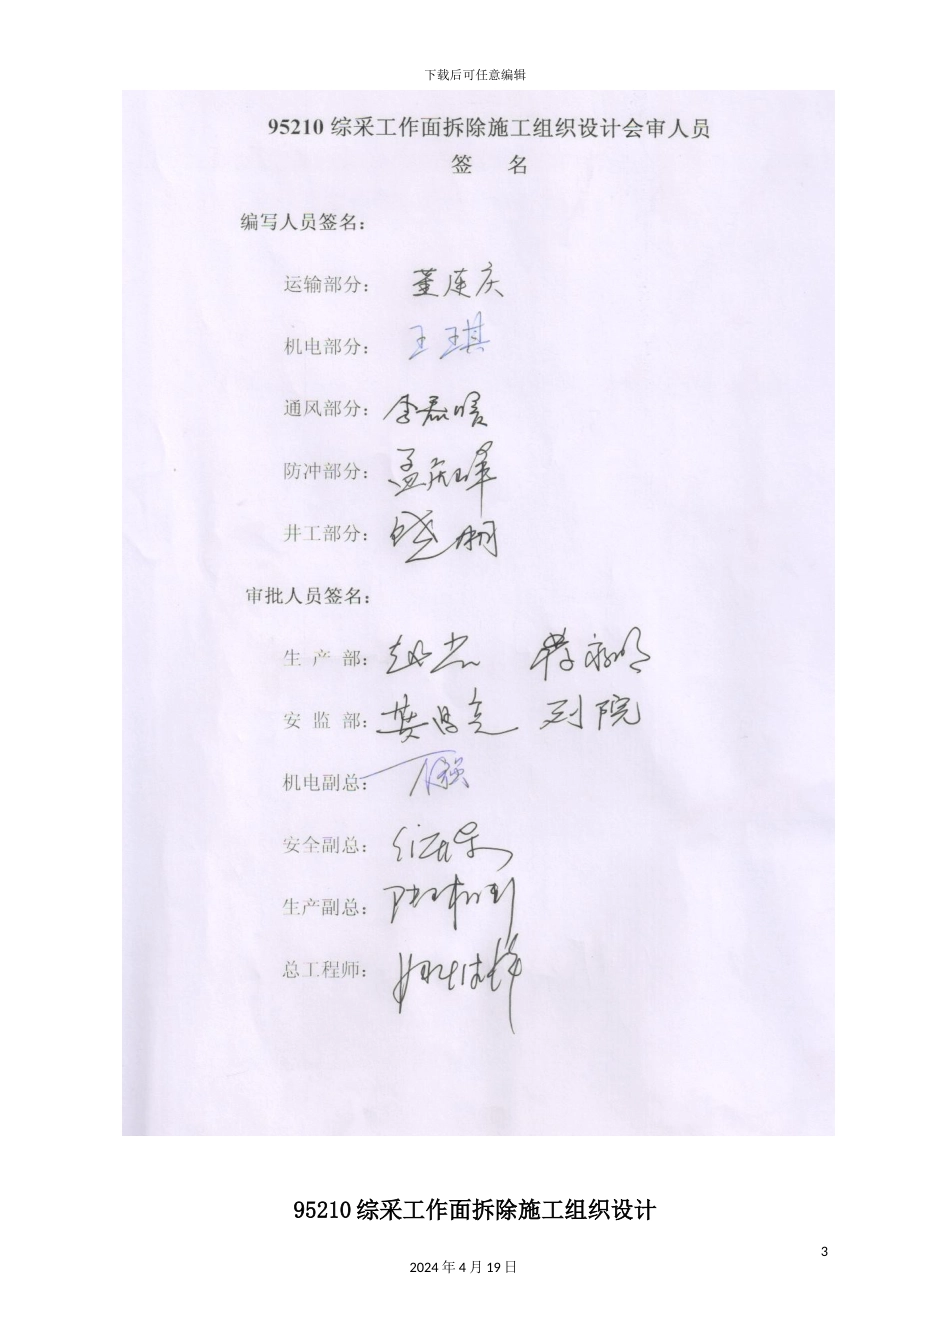 下载后可任意编辑
95210 综采工作面拆除施工组织设计会审人员
签 名
编写人员签名：
运输部分： 董连庆
机电部分： 王琪
通风部分： 李磊暖
防冲部分： 孟庆峰
井工部分：
审批人员签名：
生 产 部： 赵杰
安 监 部： 刘院
机电副总：
安全副总：
生产副总：
总工程师：
95210 综采工作面拆除施工组织设计
3
2024 年 4 月 19 日